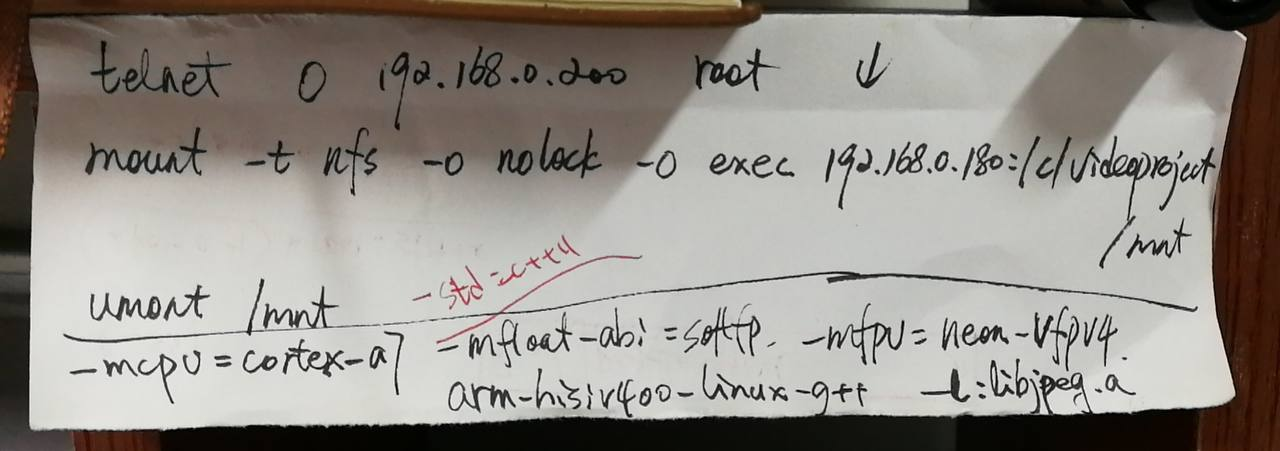 telnet 0 192.168.0.200 root ↓
mount -t nfs -o nolock -o exec 192.168.0.180:/c/videoproject
/mnt
umont /mnt
-std=c++11
-mcpu=cortex-a7 -mfloat-abi=softfp. -mfpu=neon-vfpv4.
arm-hisiv400-linux-g++ -l:libjpeg.a